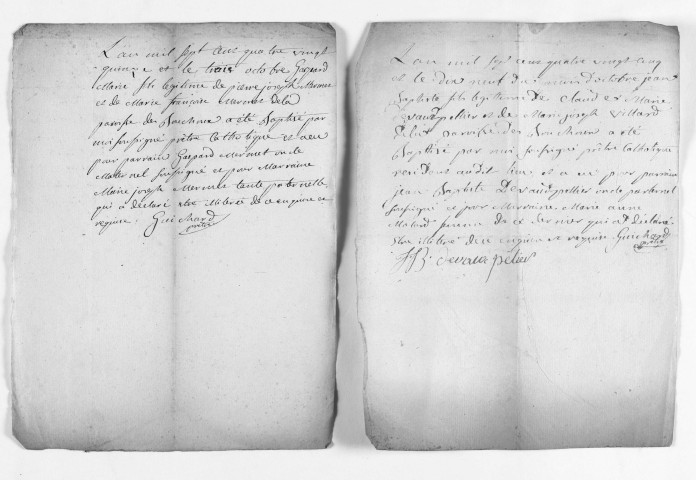 L an mil sept cens quatre vingt
quinze et le trois octobre Gaspard
Marie fils legitime de pierre joseph Mermet
et de Marie françoise Mermet de la
paroisse des Bouchoux a été Baptisé par
moi soussigné prêtre Catholique et a eu
pour parrain Gaspard Mermet oncle
Maternel soussigné et pour Marraine
Marie joseph Mermet tante paternelle
qui a déclaré etre illiterée de ce enquise et
requise. Guichard
prêtre
L an mil sept cens quatre vingt cinq
et le dix neuf du mois d'octobre jean
Baptiste fils legitime de Claude Marie
Devaux pellier et de Marie joseph Villard
de la paroisse des Bouchoux a été
Baptisé par moi soussigné prêtre Catholique
audit lieu et a eu pour parrain
jean Baptiste Devaux pellier oncle paternel
soussigné et pour Marraine Marie anne
femme de ce dernier qui a déclaré
etre illiterée de ce enquise et requise Guichard
prêtre
JB. devaux pelier